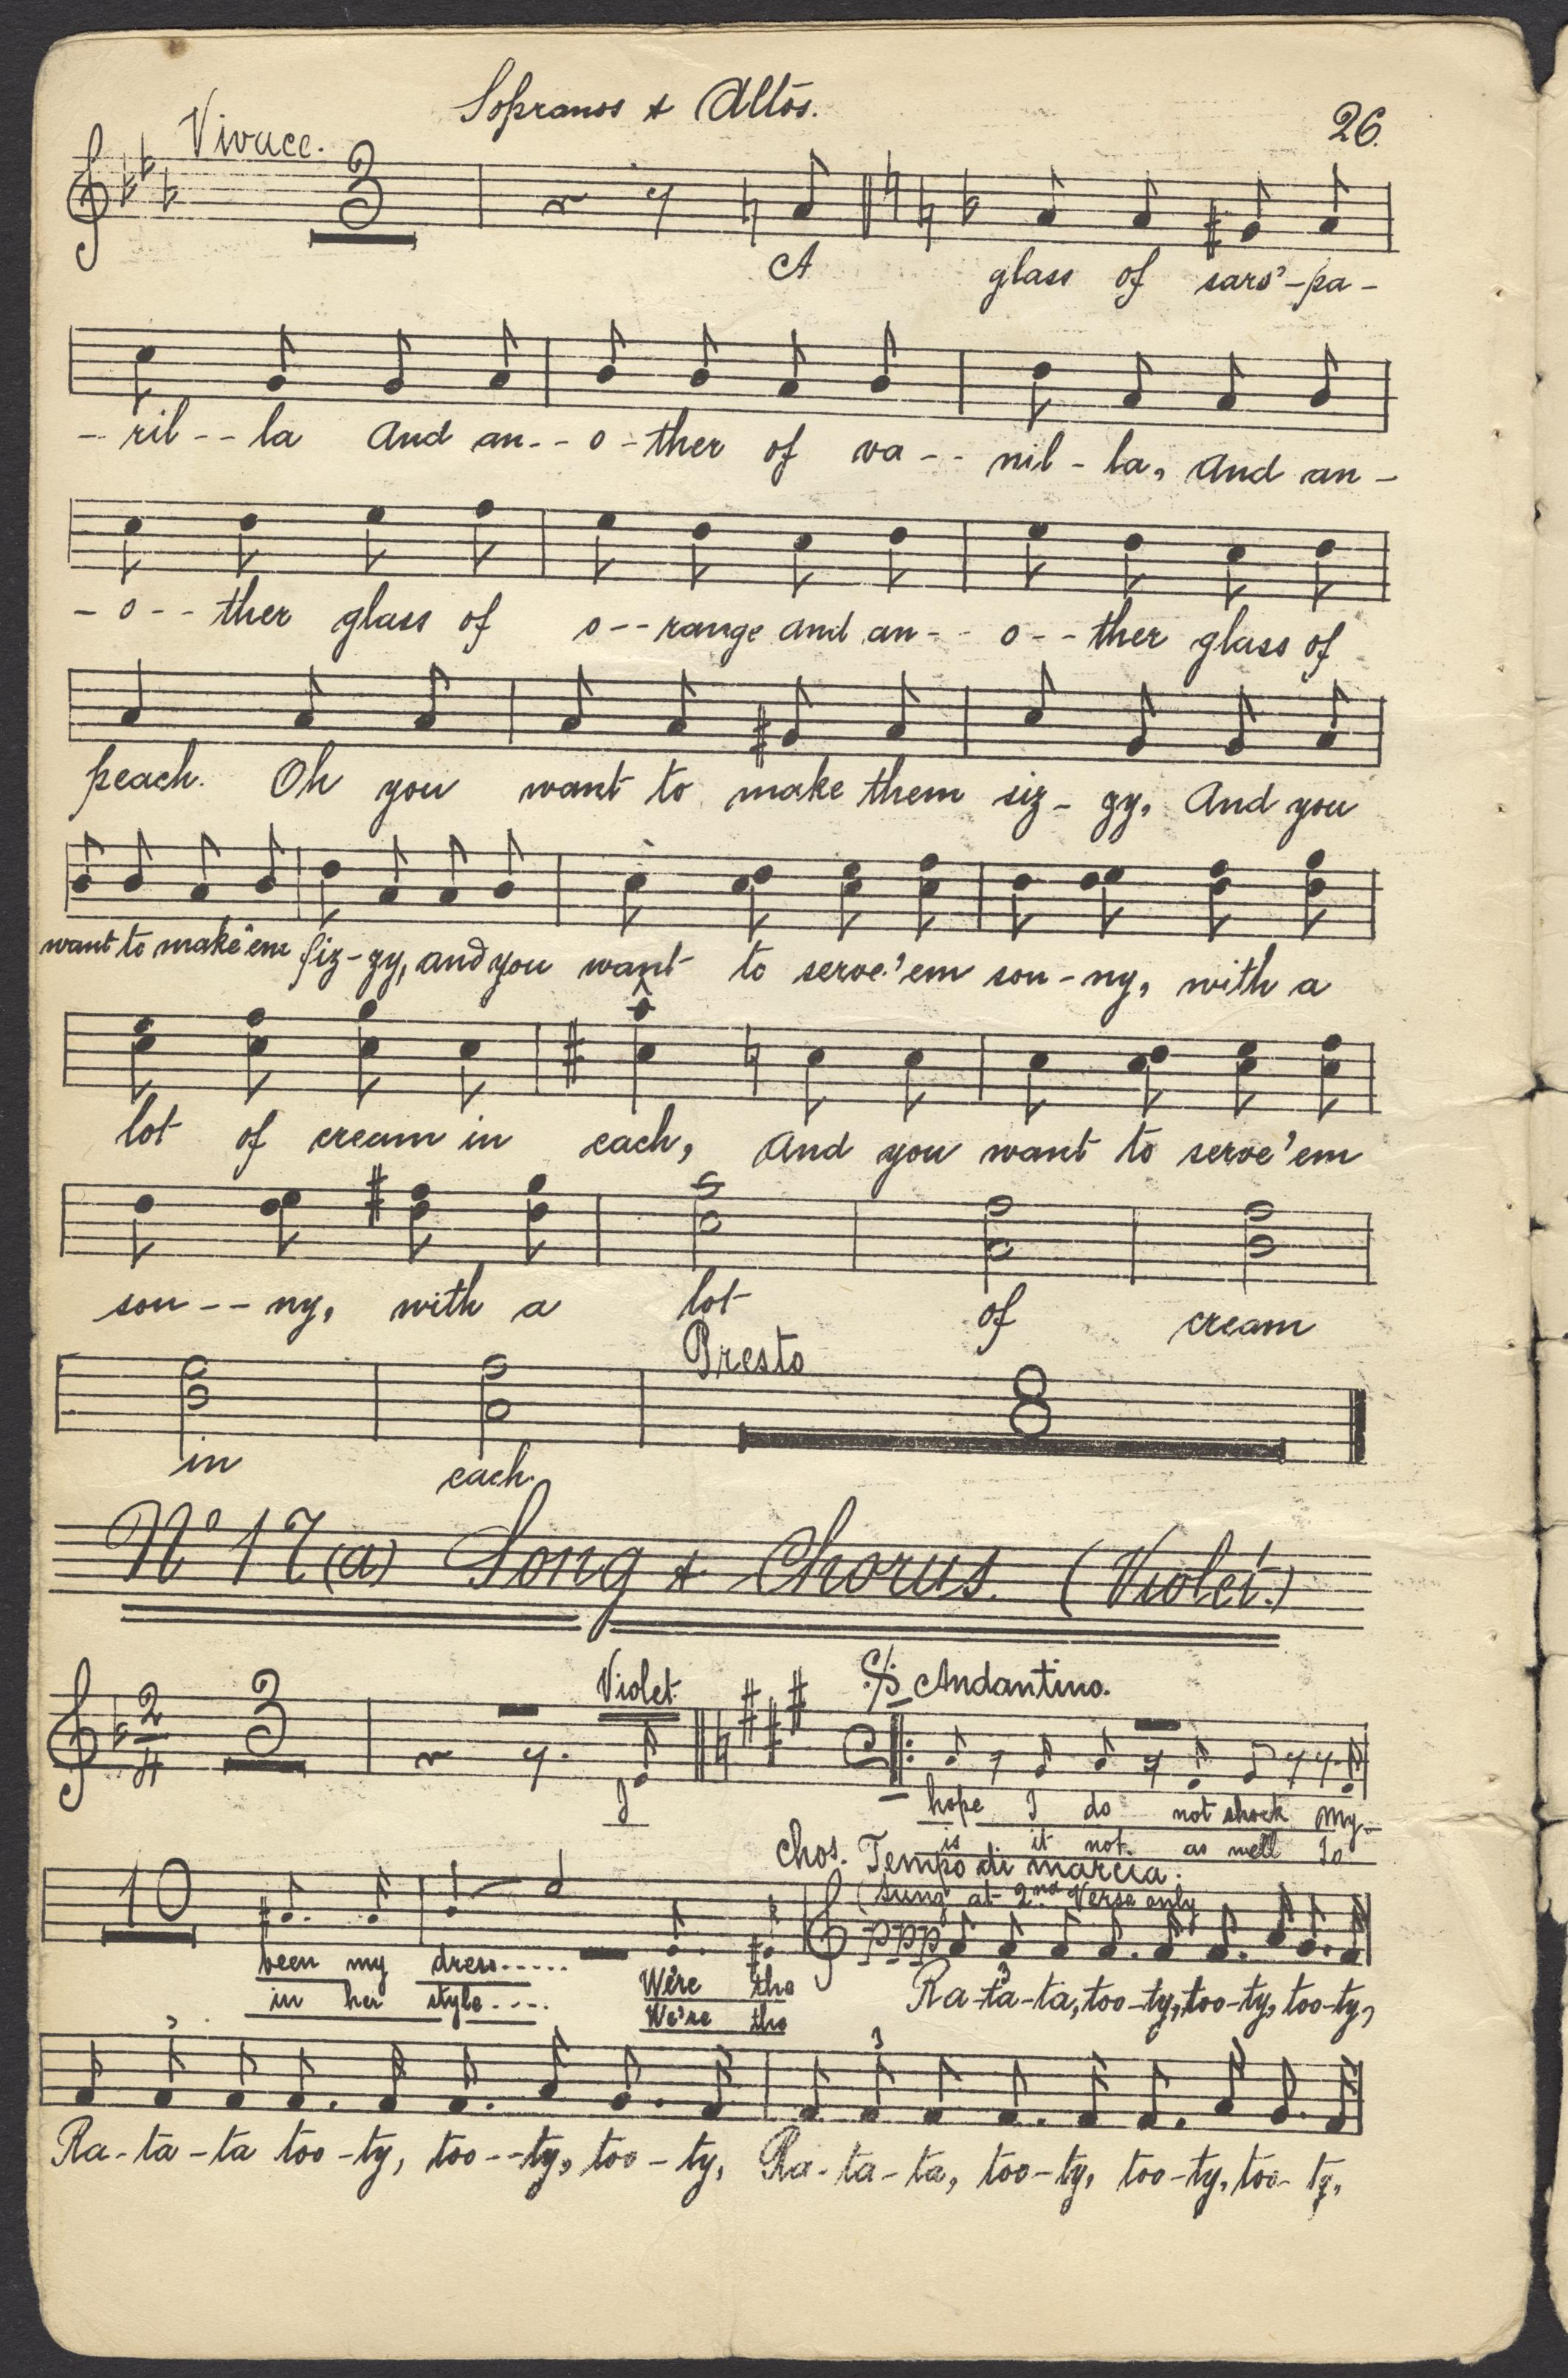 Sopranos & Altos.
26.
Vivace.
3
A glass of sars'-pa-
-ril--la And an--o-ther of va--nil-la, And an-
-o--ther glass of o--range and an--o--ther glass of
peach. Oh you want to make them siz-gy, And you
want to make 'em fiz-gy, and you want to serve 'em son-ny, with a
lot of cream in each, And you want to serve 'em
son--ny, with a lot of cream
Presto
8
in each.
No 17(a) Song & Chorus. (Violet.)
Violet.
Andantino.
2/4 3
I hope I do not shock My-
is it not as well To
Chos. Tempo di marcia.
(sung at 2nd Verse only
10
ppp
been my dress..... We're the
in her style.... We're the
3
Ra-ta-ta, too-ty, too-ty, too-ty,
3 3
Ra-ta-ta too-ty, too--ty, too-ty, Ra-ta-ta, too-ty, too-ty, too-ty,